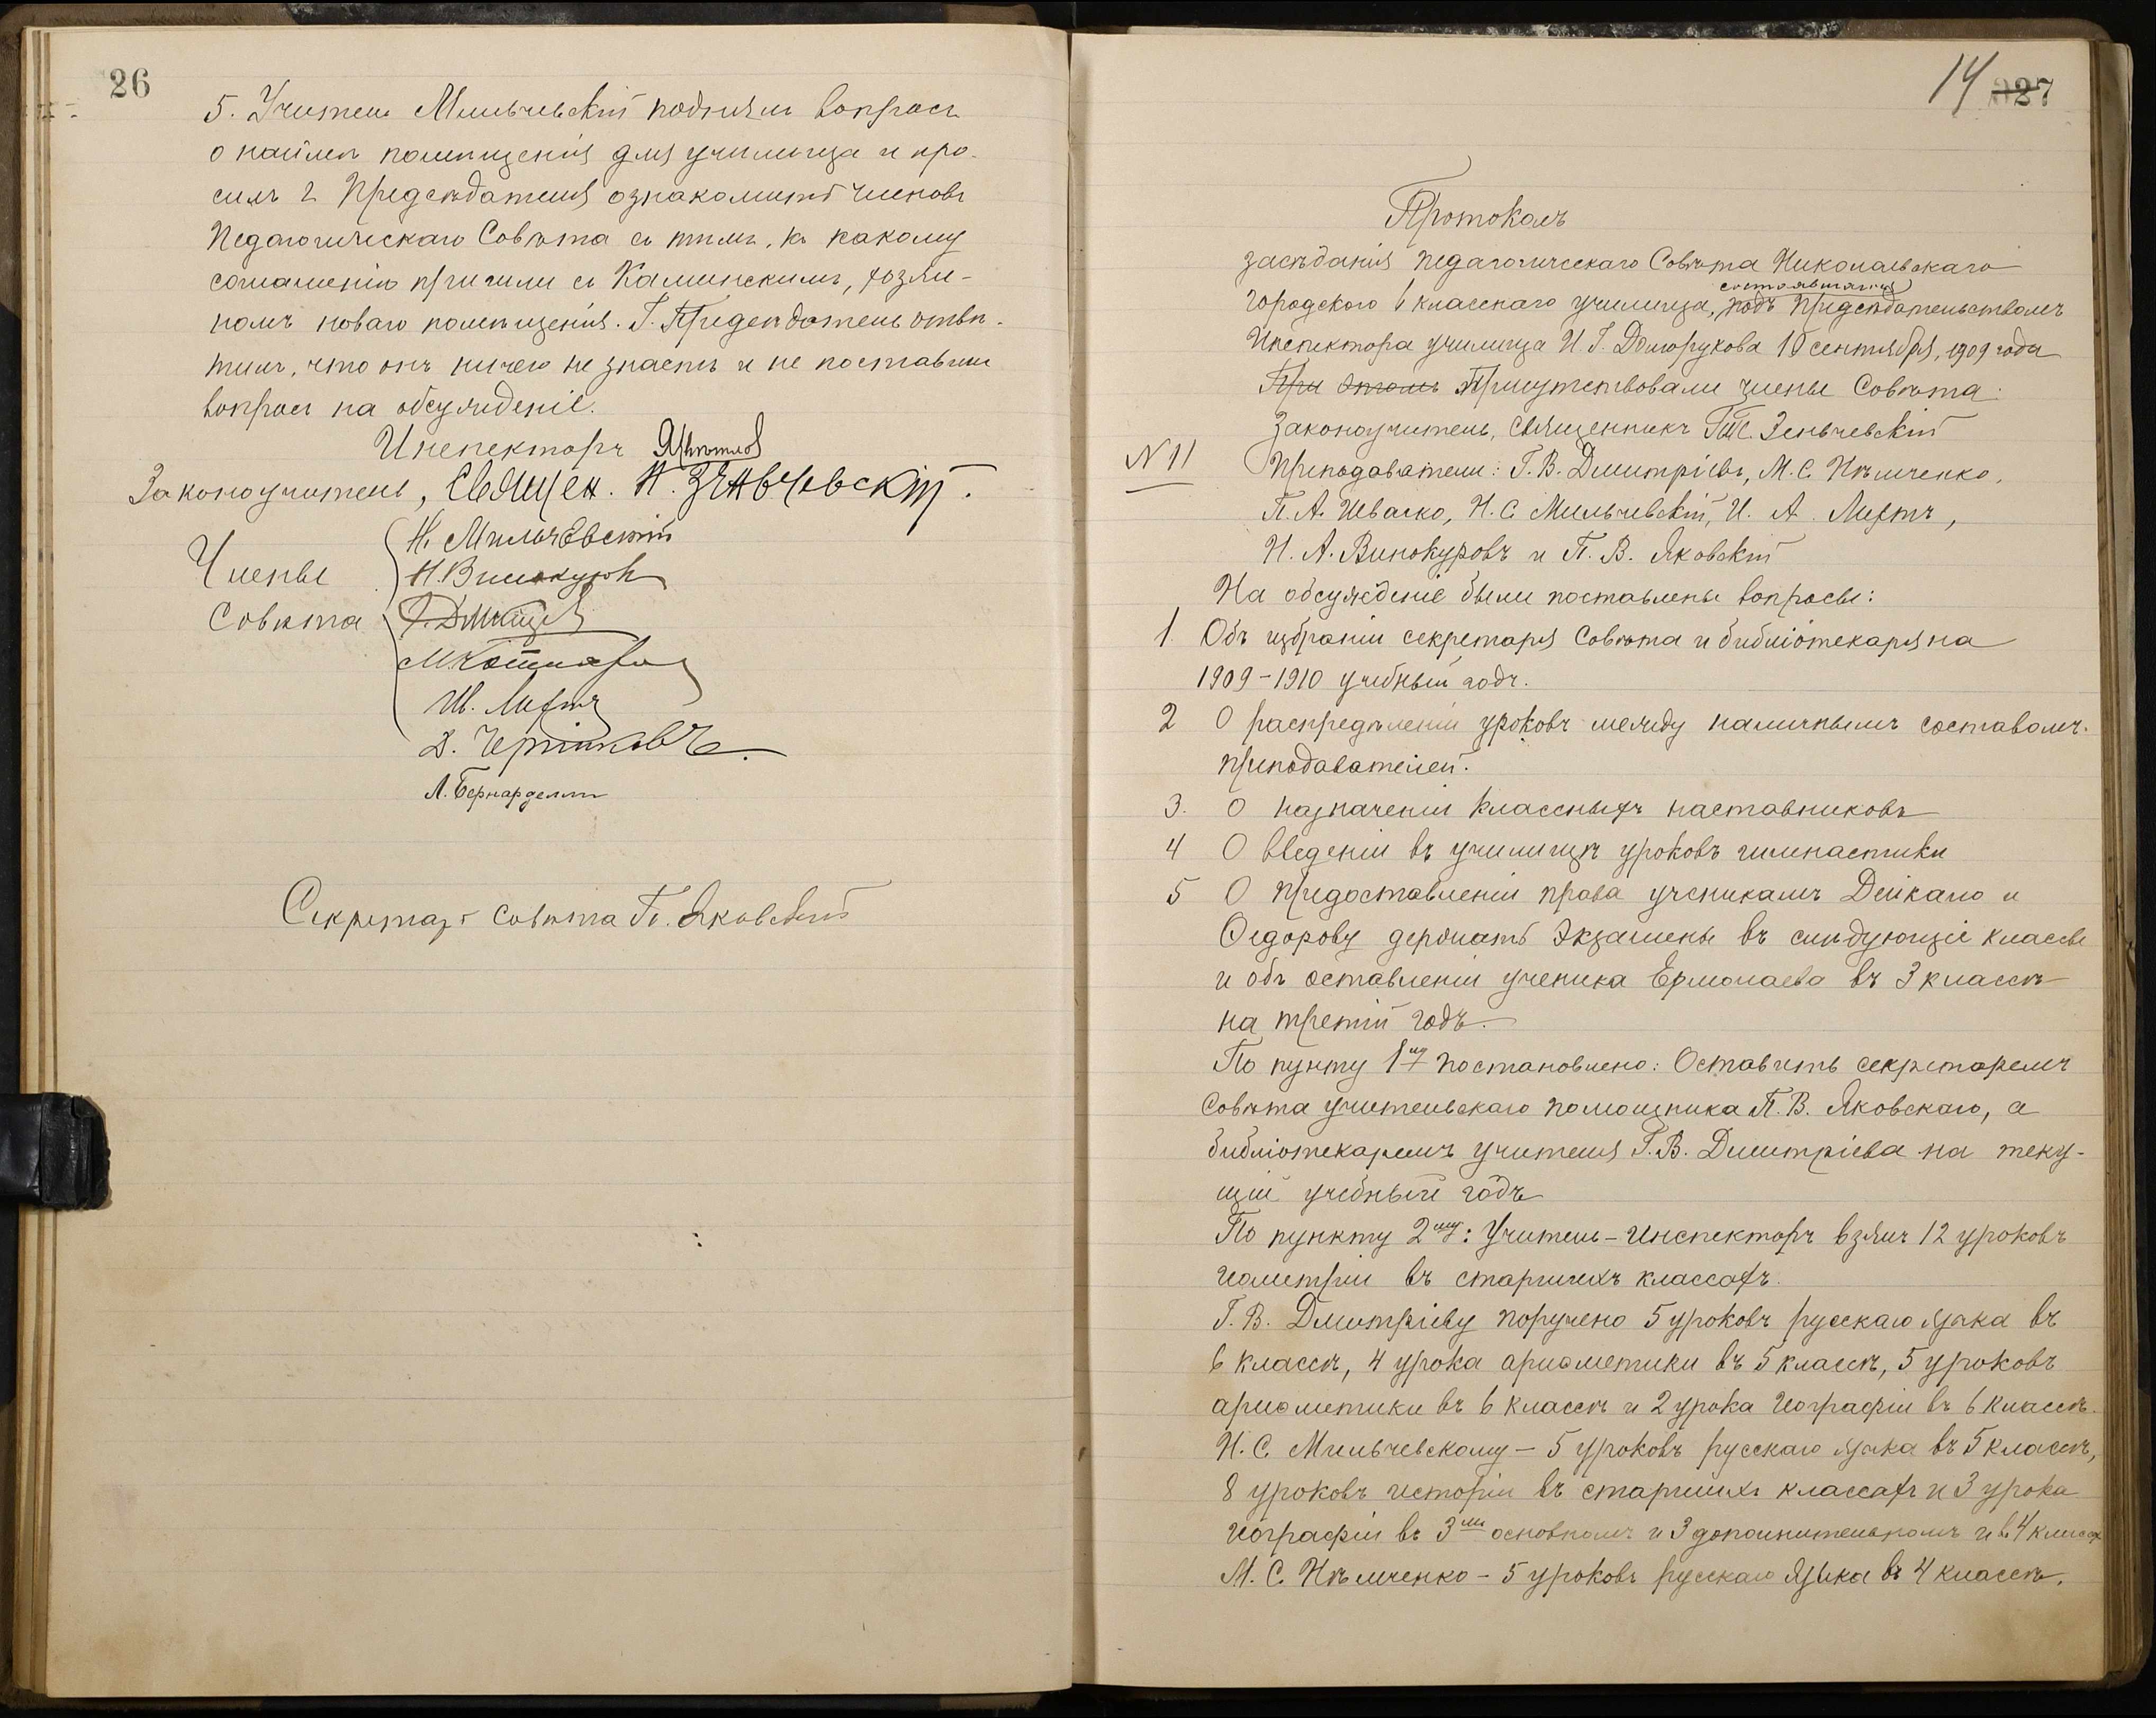 26
5. Учитель Мильчевскій поднялъ вопросъ
о наймѣ помѣщенія для училища и про-
силъ г. Предсѣдателя ознакомить членовъ
Педагогическаго Совѣта съ тѣмъ, къ какому
соглашенію пришли съ Каминскимъ, хозяи-
номъ новаго помѣщенія. Г. Предсѣдатель отвѣ-
тилъ, что онъ ничего не знаетъ и не поставилъ
вопроса на обсужденіе.
Инспекторъ
Законоучитель, Священ. Н. Зеньчевскій.
Члены
Совѣта
Н. Мильчевскій
Н. Винокуровъ
Г. Дмитріевъ
И. Лифтъ
Д. Чертковъ.
Л. Бернарделли
Секретарь Совѣта П. Яковскій
14 027
Протоколъ
засѣданія педагогическаго Совѣта Николаевскаго
состоявшагося
городского 6 класснаго училища, подъ предсѣдательствомъ
Инспектора училища И. Г. Долгорукова 15 сентября, 1909 года
При этомъ Присутствовали члены Совѣта:
Законоучитель, священникъ Зеньчевскій
N 11
Преподаватели: Г. В. Дмитріевъ, М. С. Нѣмченко,
П. А. Шваско, Н. С. Мильчевскій, И. А. Лифтъ,
Н. А. Винокуровъ и П. В. Яковскій
На обсужденіе были поставлены вопросы:
1. Объ избраніи секретаря Совѣта и библіотекаря на
1909-1910 учебный годъ.
2 О распредѣленіи уроковъ между наличнымъ составомъ
преподавателей.
3. О назначеніи классныхъ наставниковъ
4 О введеніи въ училищѣ уроковъ гимнастики
5 О предоставленіи права ученикамъ Дейкало и
Ѳедорову держать экзамены въ слѣдующіе классы
и объ оставленіи ученика Ермолаева въ 3 классѣ
на третій годъ.
По пункту 1му постановлено: Оставить секретаремъ
Совѣта учительскаго помощника П. В. Яковскаго, а
библіотекаремъ учителя Г. В. Дмитріева на теку-
щій учебный годъ
По пункту 2му: Учитель-Инспекторъ взялъ 12 уроковъ
геометріи въ старшихъ классахъ.
Г. В. Дмитріеву поручено 5 уроковъ русскаго языка въ
6 классѣ, 4 урока ариѳметики въ 5 классѣ, 5 уроковъ
ариѳметики въ 6 классѣ и 2 урока географіи въ 6 классѣ.
Н. С. Мильчевскому - 5 уроковъ русскаго языка въ 5 классѣ,
8 уроковъ исторіи въ старшихъ классахъ и 3 урока
географіи въ 3мъ основномъ и 3 дополнительномъ и въ 4 классѣ
М. С. Нѣмченко - 5 уроковъ русскаго языка въ 4 классѣ.